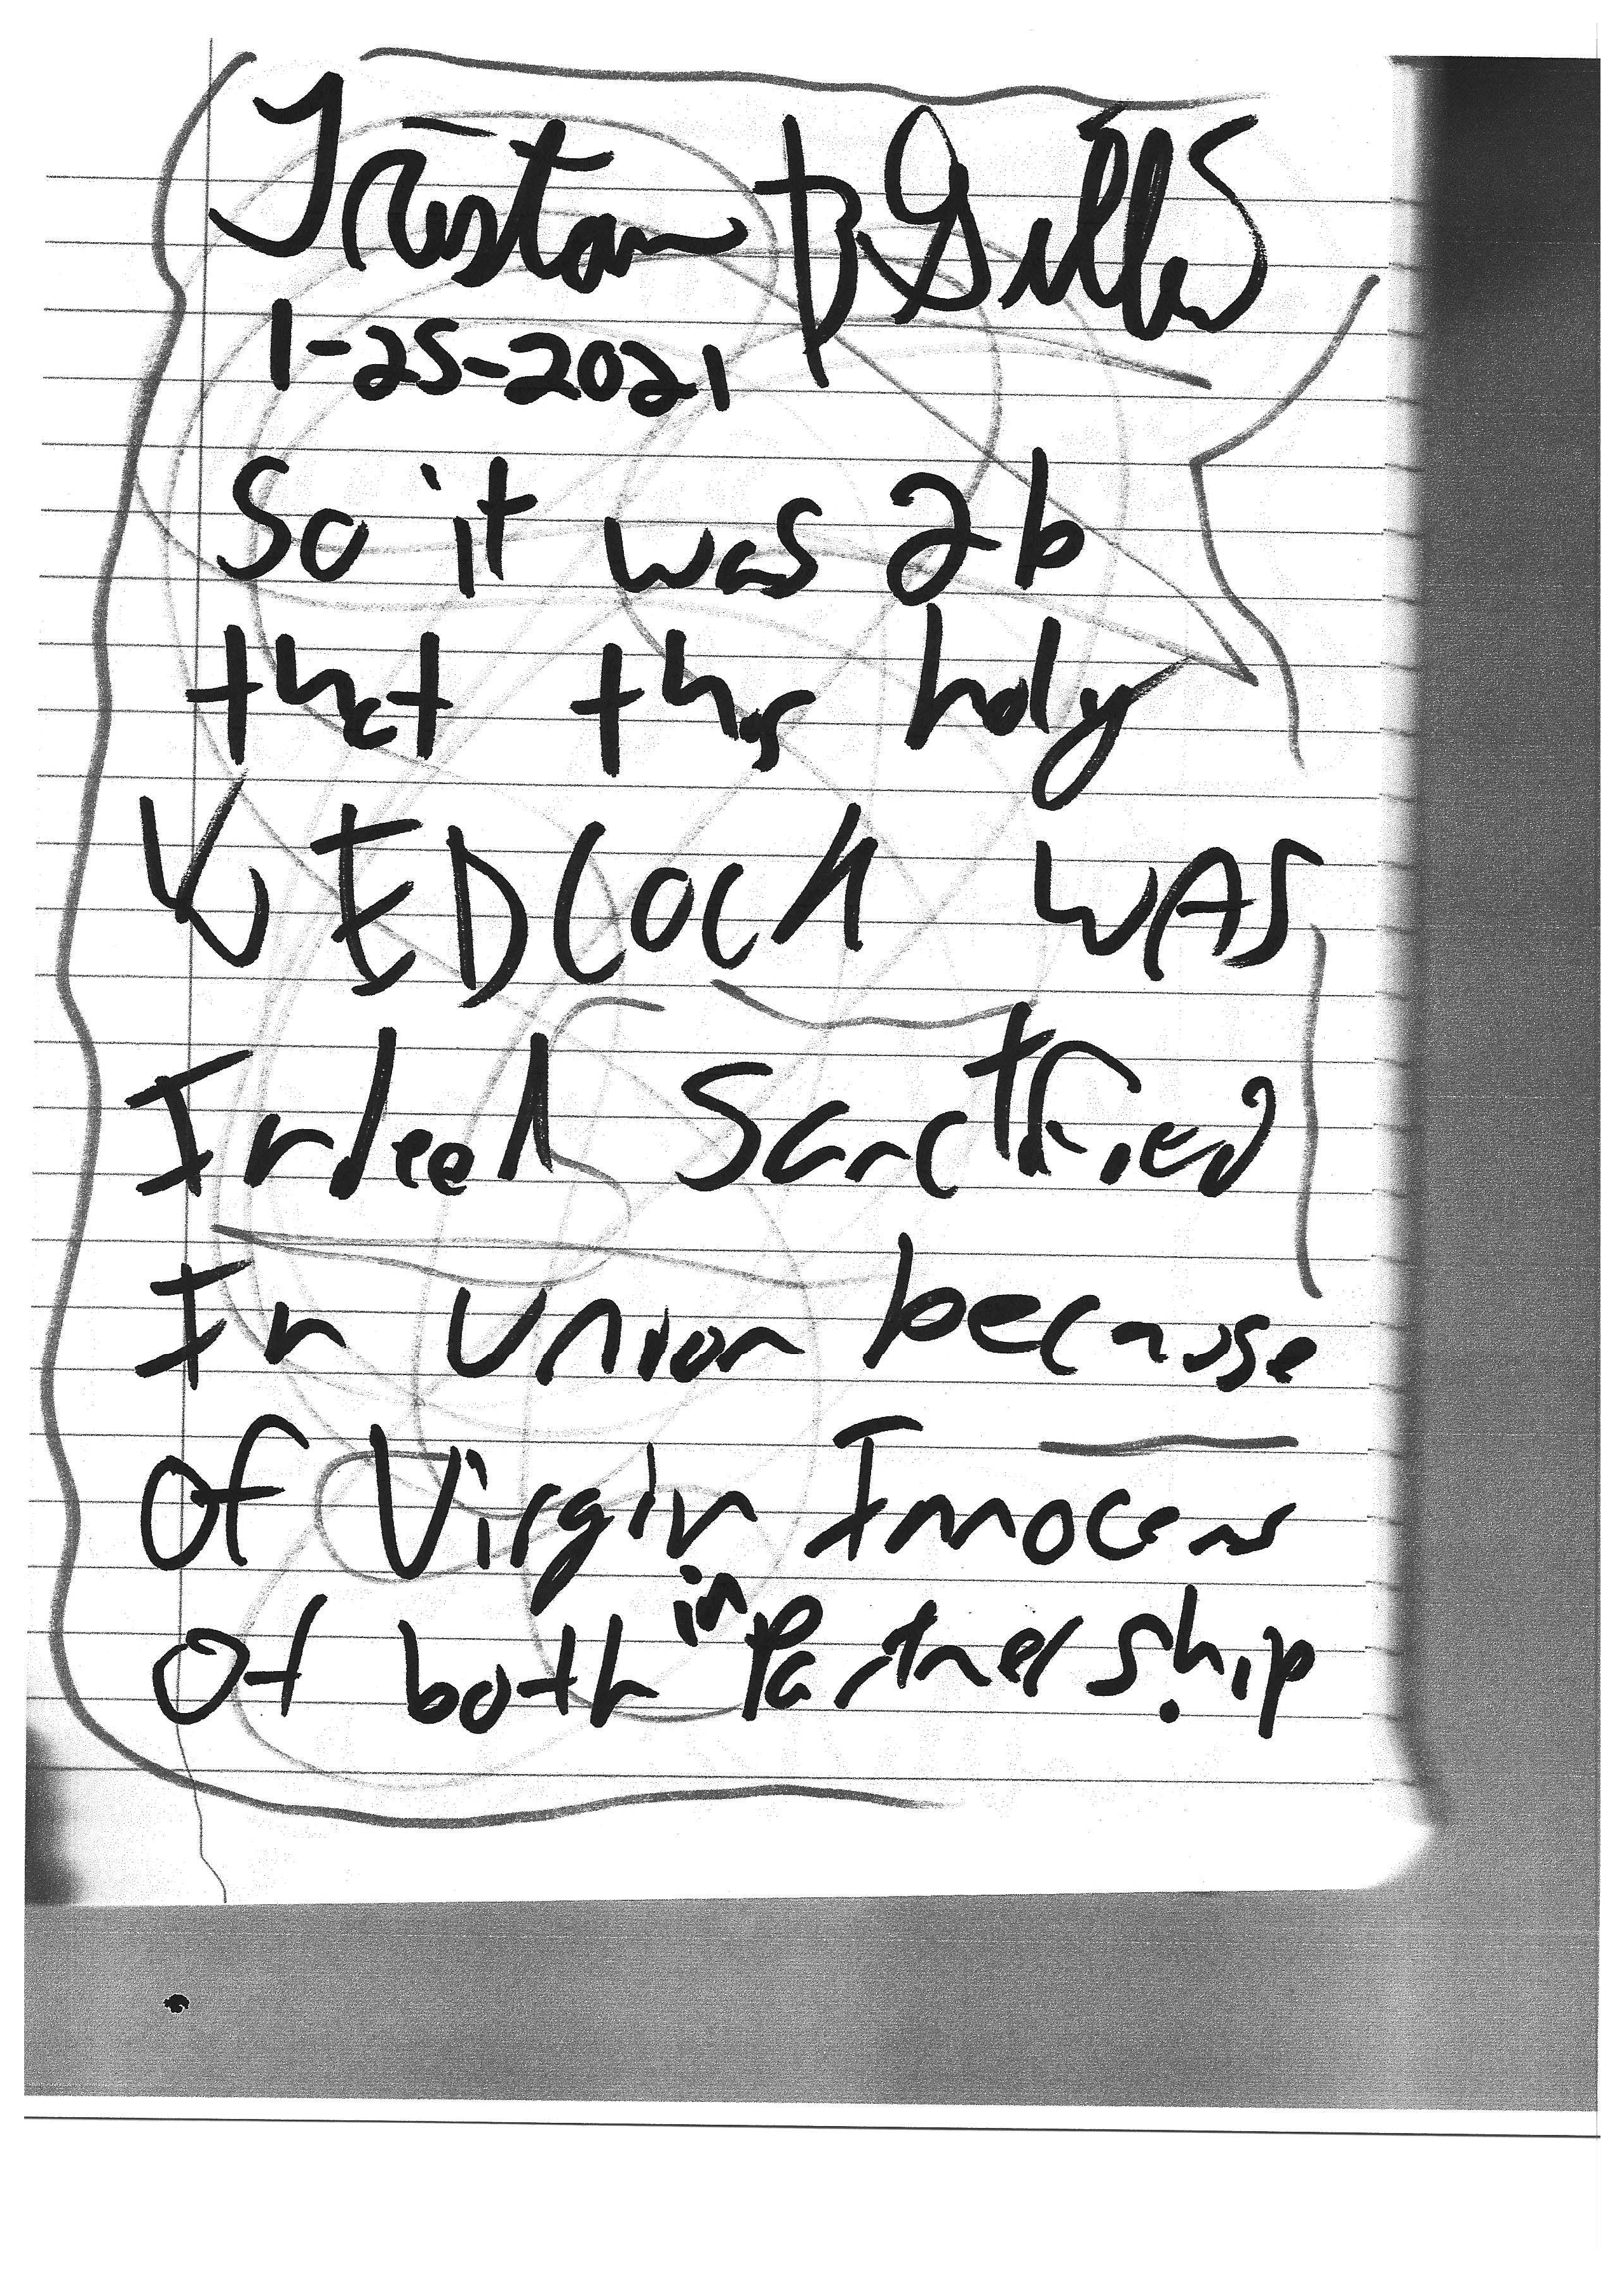 Tristan B Gilles
1-25-2021
So it was 2b
that this holy
WEDLOCK WAS
Indeed Sanctified
In Union because
Of Virgin Innocens
Of both in Partnership